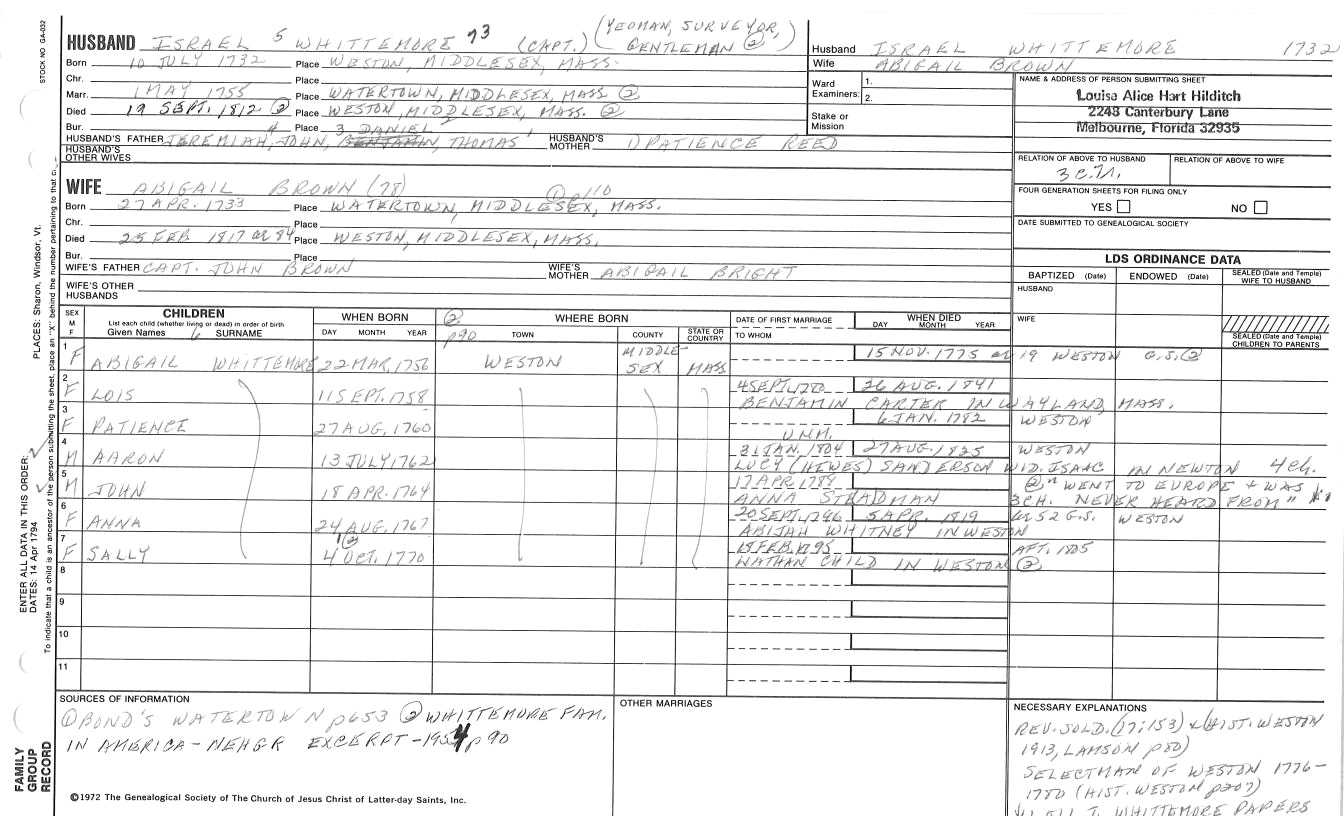 STOCK NO GA-032
HUSBAND ISRAEL 5 WHITTEMORE 73 (CAPT.) (YEOMAN, SURVEYOR, GENTLEMAN ②)
Born 10 JULY 1732 Place WESTON, MIDDLESEX, MASS.
Chr. Place
Marr. 1 MAY 1755 Place WATERTOWN, MIDDLESEX, MASS ②
Died 19 SEPT. 1812 ② Place WESTON, MIDDLESEX, MASS. ②
Bur. Place
HUSBAND'S FATHER JEREMIAH, 4 JOHN, 3 DANIEL BENJAMIN, 2 THOMAS 1 HUSBAND'S MOTHER ① PATIENCE REED
HUSBAND'S OTHER WIVES
WIFE ABIGAIL BROWN (78) ① p110
Born 27 APR. 1733 Place WATERTOWN, MIDDLESEX, MASS.
Chr. Place
Died 25 FEB 1817 ae 84 Place WESTON, MIDDLESEX, MASS.
Bur. Place
WIFE'S FATHER CAPT. JOHN BROWN WIFE'S MOTHER ABIGAIL BRIGHT
WIFE'S OTHER HUSBANDS
Husband ISRAEL WHITTEMORE 1732
Wife ABIGAIL BROWN
Ward Examiners: 1.
2.
Stake or Mission
NAME & ADDRESS OF PERSON SUBMITTING SHEET
Louisa Alice Hart Hilditch
2248 Canterbury Lane
Melbourne, Florida 32935
RELATION OF ABOVE TO HUSBAND RELATION OF ABOVE TO WIFE
FOUR GENERATION SHEETS FOR FILING ONLY
YES NO
DATE SUBMITTED TO GENEALOGICAL SOCIETY
LDS ORDINANCE DATA
BAPTIZED (Date) ENDOWED (Date) SEALED (Date and Temple) WIFE TO HUSBAND
HUSBAND
WIFE
SEALED (Date and Temple) CHILDREN TO PARENTS
SEX M F CHILDREN WHEN BORN ② WHERE BORN DATE OF FIRST MARRIAGE WHEN DIED
List each child (whether living or dead) in order of birth
Given Names 6 SURNAME DAY MONTH YEAR p90 TOWN COUNTY STATE OR COUNTRY TO WHOM DAY MONTH YEAR
1 F ABIGAIL WHITTEMORE 22 MAR, 1756 WESTON MIDDLESEX MASS 15 NOV. 1775 ae 19 WESTON G.S. ②
2 F LOIS 11 SEPT. 1758 4 SEPT, 1780 26 AUG. 1841
BENJAMIN CARTER IN WAYLAND, MASS.
3 F PATIENCE 27 AUG, 1760 6 JAN. 1782 WESTON
UNM.
4 M AARON 13 JULY 1762 31 JAN. 1804 27 AUG. 1825 WESTON
LUCY (HEWES) SANDERSON WID. ISAAC IN NEWTON 4 ch.
5 M JOHN 18 APR. 1764 17 APR. 1789 ②, " WENT TO EUROPE + WAS
ANNA STRADMAN 3 CH. NEVER HEARD FROM"
6 F ANNA 24 AUG, 1767 20 SEPT, 1796 5 APR. 1819 ae 52 G.S. WESTON
ABIJAH WHITNEY IN WESTON
7 F SALLY 4 OCT. 1770 ② 18 FEB, 1795 AFT. 1805
NATHAN CHILD IN WESTON ②
8
9
10
11
SOURCES OF INFORMATION
① BOND'S WATERTOWN p653 ② WHITTEMORE FAM.
IN AMERICA - NEHGR EXCERPT - 1954 p90
OTHER MARRIAGES
NECESSARY EXPLANATIONS
REV. SOLD. (17;153) & (HIST. WESTON
1913, LAMSON p80)
SELECTMAN OF WESTON 1776-
1780 (HIST. WESTON p207)
WHITTEMORE PAPERS
©1972 The Genealogical Society of The Church of Jesus Christ of Latter-day Saints, Inc.
FAMILY GROUP RECORD
ENTER ALL DATA IN THIS ORDER:
DATES: 14 Apr 1794
PLACES: Sharon, Windsor, Vt.
To indicate that a child is an ancestor of the person submitting the sheet, place an "X" behind the number pertaining to that c